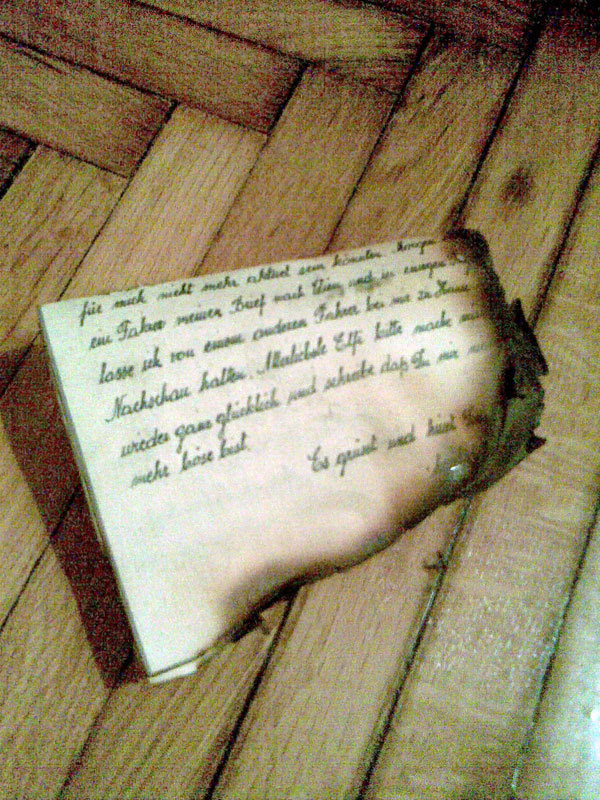 für mich nicht mehr aktuel sein könnten. Morgen
ein Fahrer meinen Brief nach Wien und in einigen
lasse ich von einem anderen Fahrer bei mir zu Hause
Nachschau halten. Allerliebste Elfi bitte mache mich
wieder ganz glücklich und schreibe daß Du mir nicht
mehr böse bist.
Es grüsst und küsst